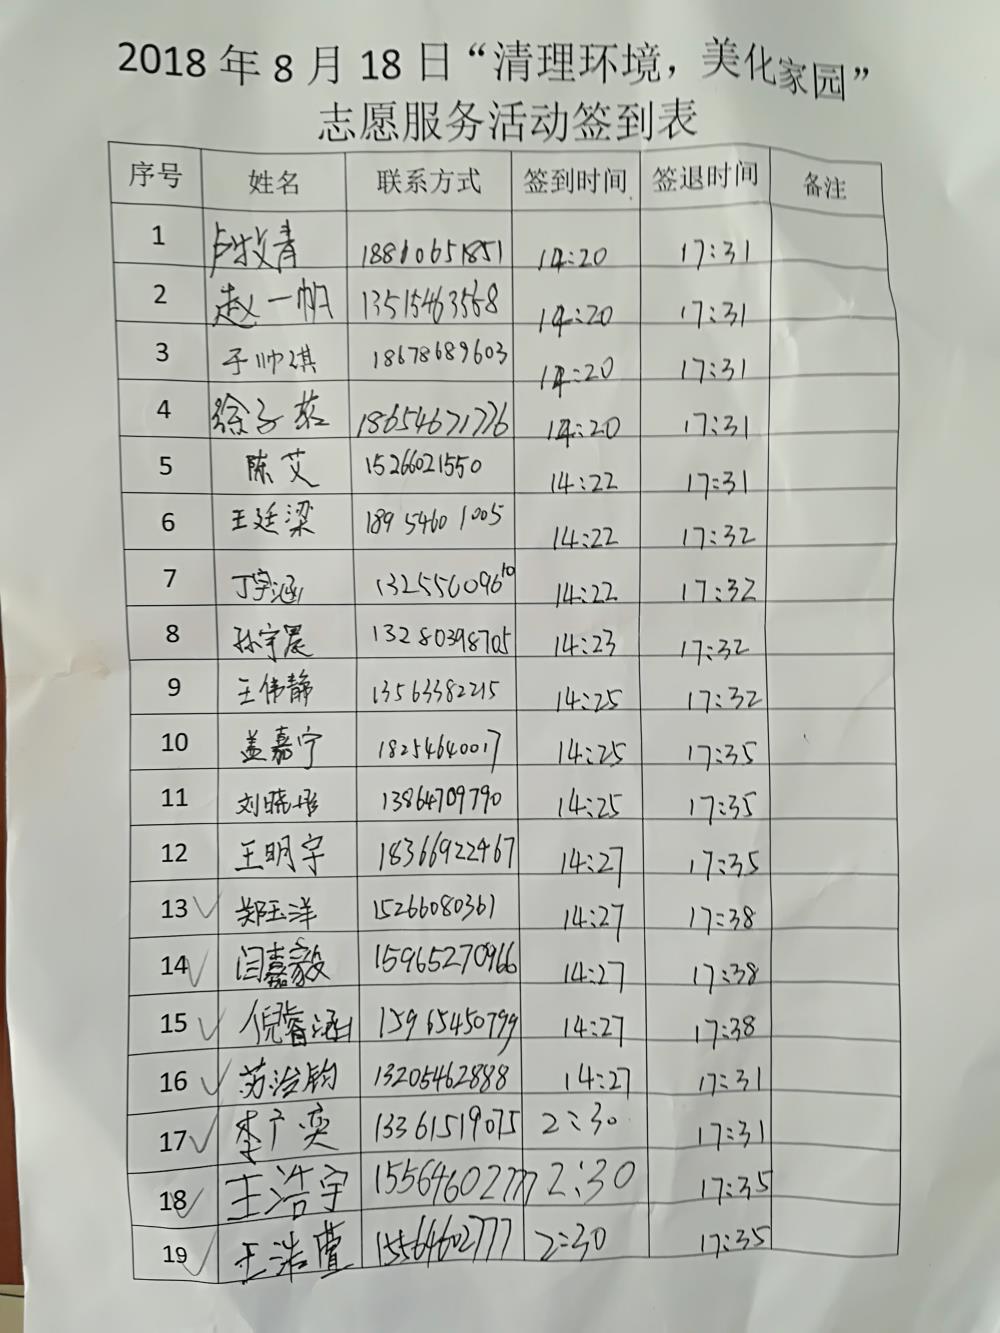 2018 年 8 月 18 日“清理环境，美化家园”
志愿服务活动签到表
序号 姓名 联系方式 签到时间 签退时间 备注
1 卢牧青 18810651851 14:20 17:31
2 赵一帆 13515463568 14:20 17:31
3 于帅琪 18678689603 14:20 17:31
4 徐子茹 18654671776 14:20 17:31
5 陈艾 15266021550 14:22 17:31
6 王廷梁 18954601005 14:22 17:32
7 丁宇涵 13255609610 14:22 17:32
8 孙宇晨 13280398705 14:23 17:32
9 王伟静 13563382215 14:25 17:32
10 盖嘉宁 18254640017 14:25 17:35
11 刘晓彤 13864709790 14:25 17:35
12 王明宇 18366922467 14:27 17:35
13 郑玉洋 15266080361 14:27 17:38
14 闫嘉毅 15965270966 14:27 17:38
15 倪睿涵 15965450799 14:27 17:38
16 苏治钧 13205462888 14:27 17:31
17 李广奕 13361519075 2:30 17:31
18 王浩宇 15564602777 2:30 17:35
19 王浩萱 15564602777 2:30 17:35